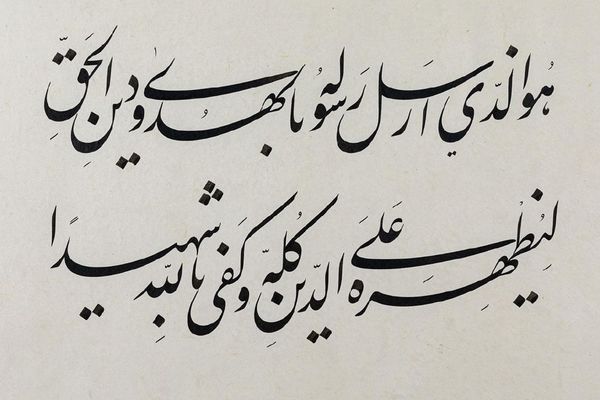 هُوَ الَّذي أَرسَلَ رَسُولَهُ بِالهُدىٰ وَدينِ الحَقِّ
لِيُظهِرَهُ عَلَى الدّينِ كُلِّهِ وَكَفى بِاللّهِ شَهيدًا